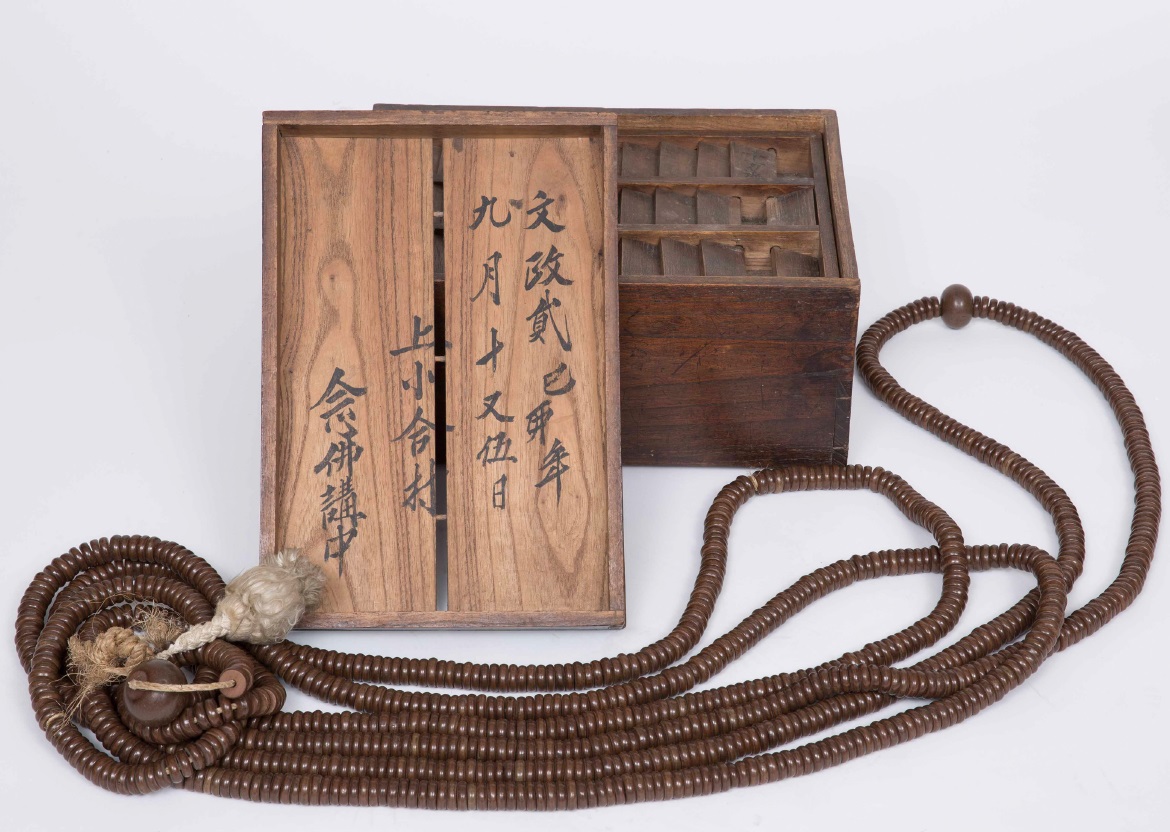 文政貳己卯年
九月十又伍日
上小合村
念佛講中